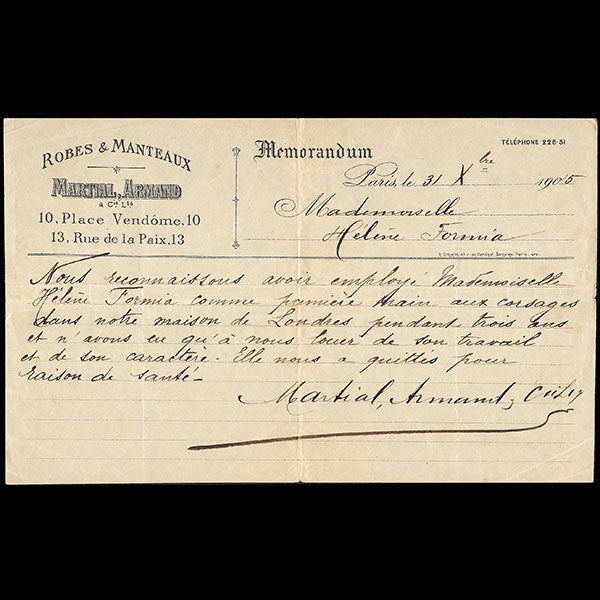 ROBES & MANTEAUX
MARTIAL, ARMAND
& Cie Ltd
10, Place Vendôme, 10
13, Rue de la Paix, 13
Memorandum
TÉLÉPHONE 228-31
Paris le 31 Xbre 1905
Mademoiselle
Hélène Formia
Nous reconnaissons avoir employé Mademoiselle
Hélène Formia comme première main aux corsages
dans notre maison de Londres pendant trois ans
et n'avons eu qu'à nous louer de son travail
et de son caractère. Elle nous a quittés pour
raison de santé -
Martial, Armand, & Cie Ld